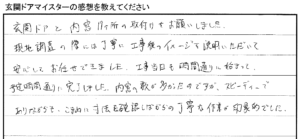 玄関ドアマイスターの感想を教えてください
玄関ドアと内窓11ヶ所の取付けをお願いしました。
現地調査の際には丁寧に工事後のイメージを説明いただいて
安心してお任せできました。工事当日も時間通りに始まって
予定時間通りに完了しました。内窓の数が多かったですが、スピーディーで
ありながらも、こまめに寸法を確認しながらの丁寧な作業が印象的でした。